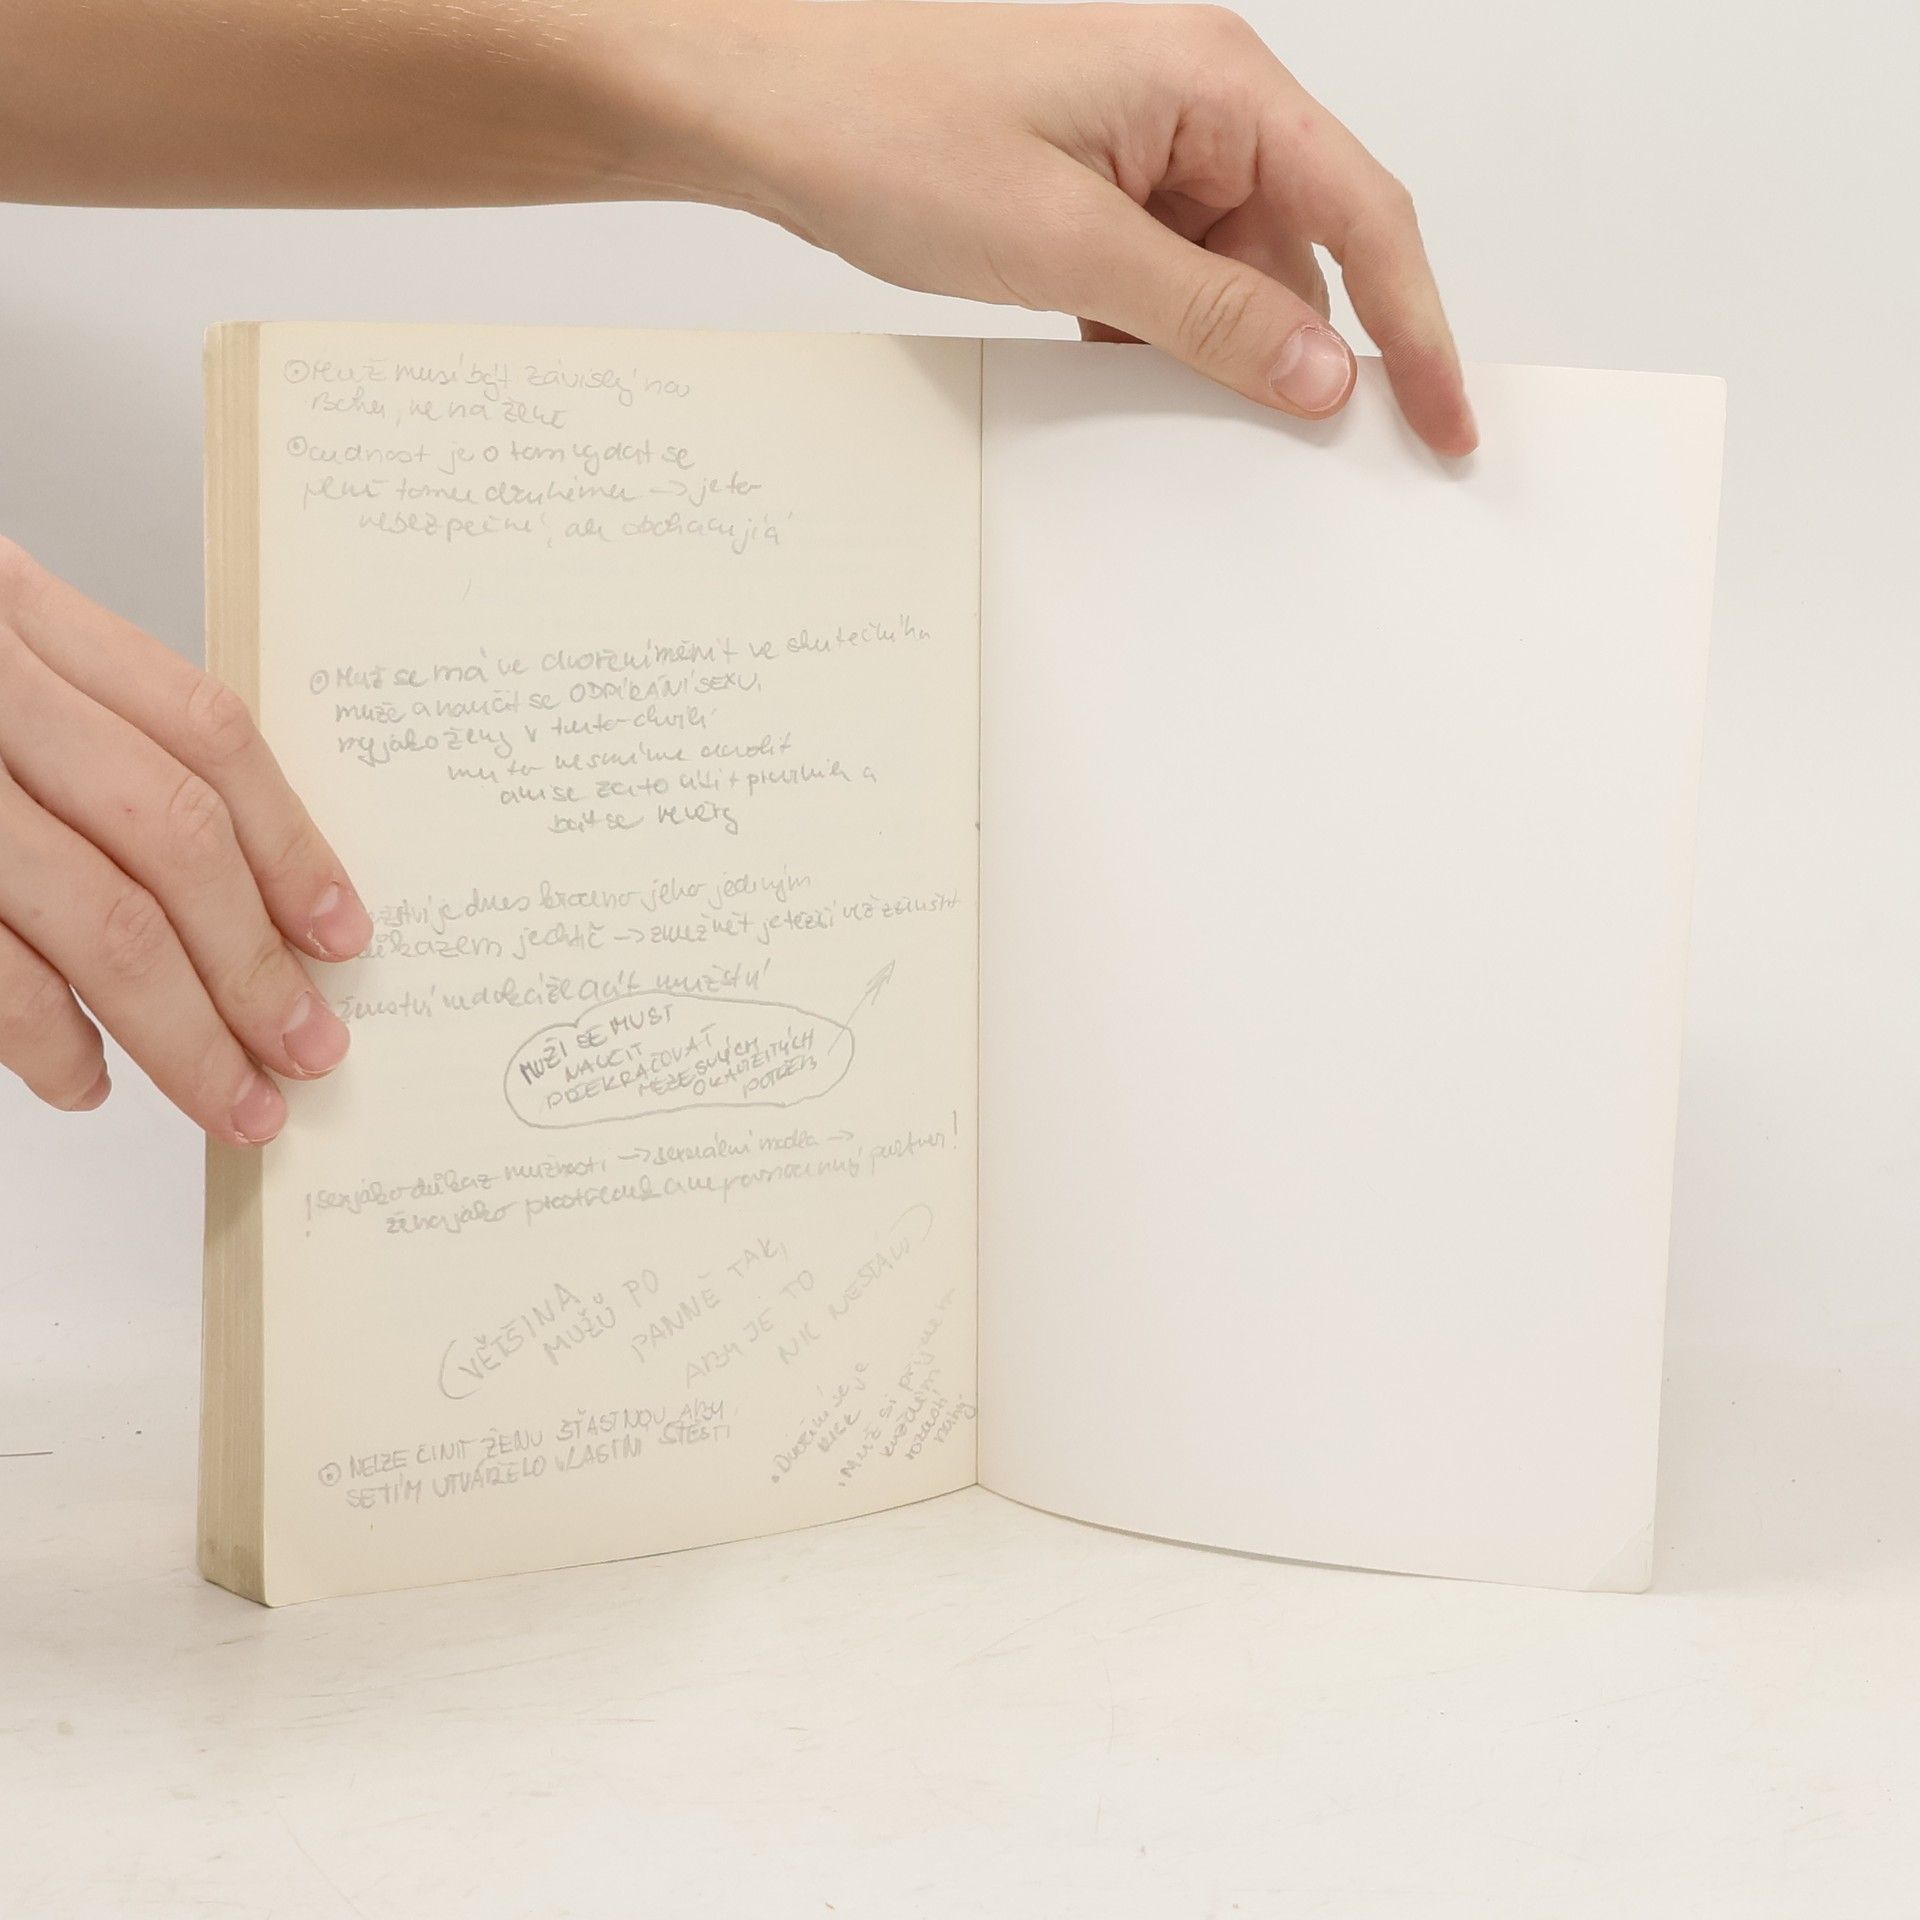 Muž musí být závislý na
Bohu, ne na ženě
cudnost je o tom vydat se
plně tomu druhému -> je to
nebezpečné, ale obohacující
Muž se má ve dvoření měnit ve skutečného
muže a naučit se ODPÍRÁNÍ SEXU,
my jako ženy v tuto chvíli
mu to nesmíme dovolit
ani se za to cítit provinile a
bát se nevěry
je dnes bráno jeho jediným
důkazem -> zmužnět je těžší než zženštit
ženství nedokáže dát mužství
MUŽI SE MUSÍ
NAUČIT
PŘEKRAČOVAT
MEZE SVÝCH
OKAMŽITÝCH
POTŘEB
! sex jako důkaz mužnosti -> sexuální modla ->
žena jako prostředek a ne rovnocenný partner!
(VĚTŠINA
MUŽŮ PO
PANNĚ TAK,
ABY JE TO
NIC NESTÁLO)
NELZE ČINIT ŽENU ŠŤASTNOU ABY
SE TÍM UTVÁŘELO VLASTNÍ ŠTĚSTÍ
• Dvoření se ve
• Muž si
každém